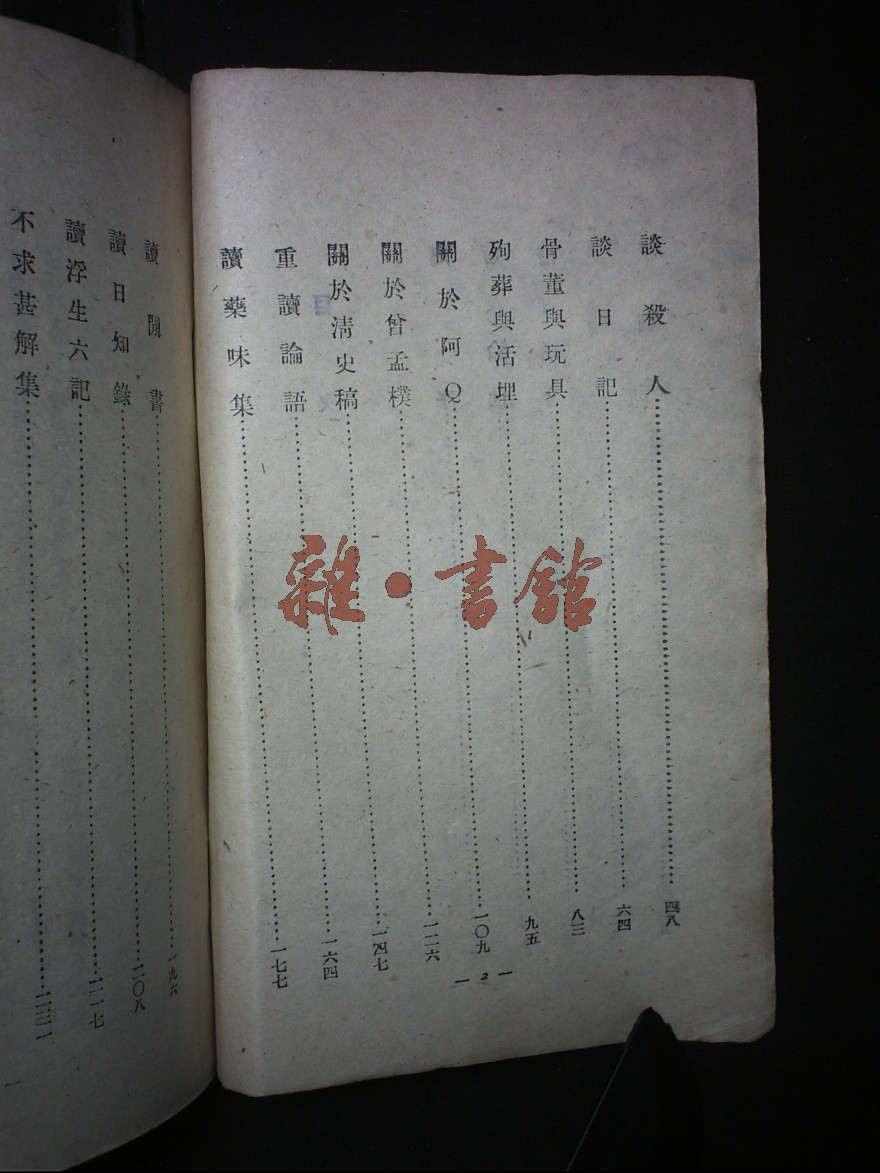 談殺人……………………四八
談日記……………………六四
骨董與玩具……………………八三
殉葬與活埋……………………九五
關於阿Q……………………一〇九
關於曾孟樸……………………一二六
關於清史稿……………………一四七
重讀論語……………………一六四
讀藥味集……………………一七七
— 2 —
讀閒書……………………一九六
讀日知錄……………………二〇八
讀浮生六記……………………二一七
不求甚解集……………………二三一
雜·書館